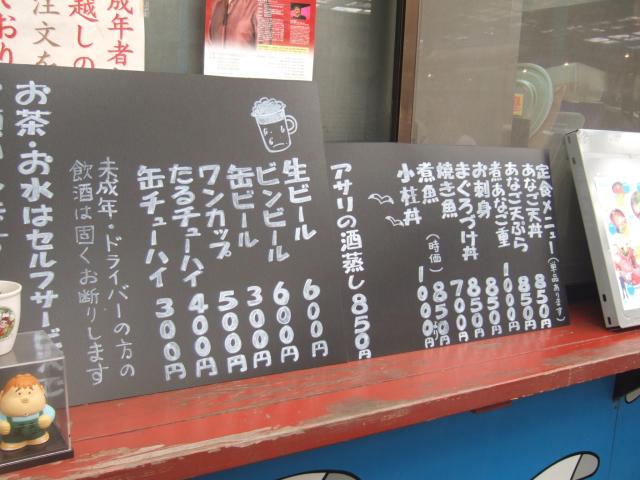 定食メニュー(単品あります)
あなご天丼 850円
あなご天ぷら 850円
煮あなご重 1000円
お刺身 850円
まぐろづけ丼 850円
焼き魚 700円
煮魚(時価) 850円
小柱丼 1000円
アサリの酒蒸し 850円
生ビール 600円
ビンビール 600円
缶ビール 300円
ワンカップ 500円
たるチューハイ 400円
缶チューハイ 300円
未成年・ドライバーの方の
飲酒は固くお断りします
お茶・お水はセルフサー
成年者
越しの
注文を